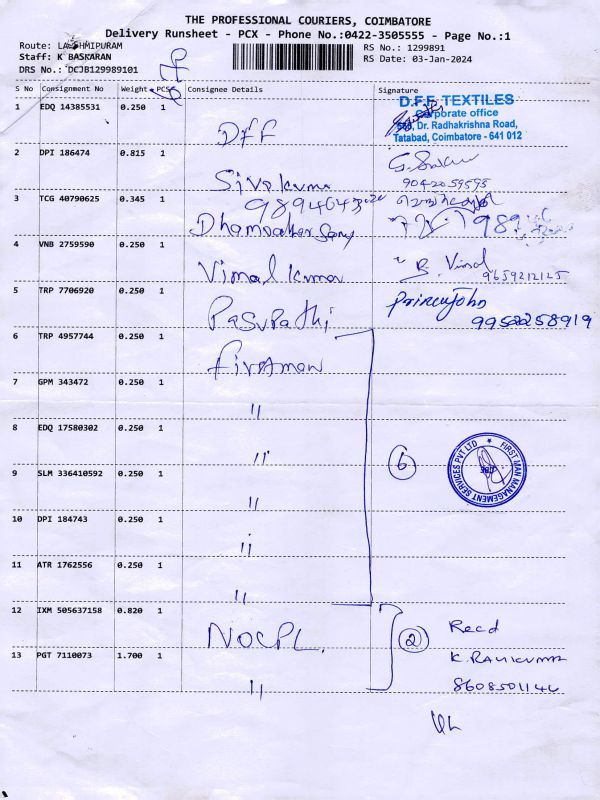 THE PROFESSIONAL COURIERS, COIMBATORE
Delivery Runsheet - PCX - Phone No.:0422-3505555 - Page No.:1
Route: LAKSHMIPURAM
RS No.: 1299891
Staff: K BASKARAN
RS Date: 03-Jan-2024
DRS No.: DCJB129989101
S No Consignment No Weight PCS Consignee Details Signature
1 EDQ 14385531 0.250 1 DFF
D.F.F. TEXTILES
Corporate office
Dr. Radhakrishna Road,
Tatabad, Coimbatore - 641 012
2 DPI 186474 0.815 1 Sivakumar
9042059595
3 TCG 40790625 0.345 1
Dhamodhar Samy
4 VNB 2759590 0.250 1 Vimal kumar B. Vimal
9659212125
5 TRP 7706920 0.250 1 Pasupathi Princy John
9952258919
6 TRP 4957744 0.250 1 Firstman
7 GPM 343472 0.250 1 "
8 EDQ 17580302 0.250 1 "
6
FIRST MAN MANAGEMENT SERVICES PVT LTD
9 SLM 336410592 0.250 1 "
10 DPI 184743 0.250 1 "
11 ATR 1762556 0.250 1 "
12 IXM 505637158 0.820 1 NOCPL 2 Recd
13 PGT 7110073 1.700 1 " K. RAVIKUMAR